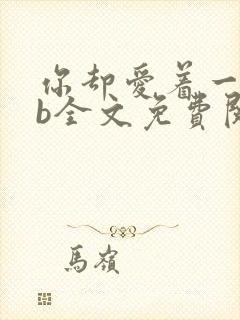 你却爱着一
b全文免費閱
馬嶺